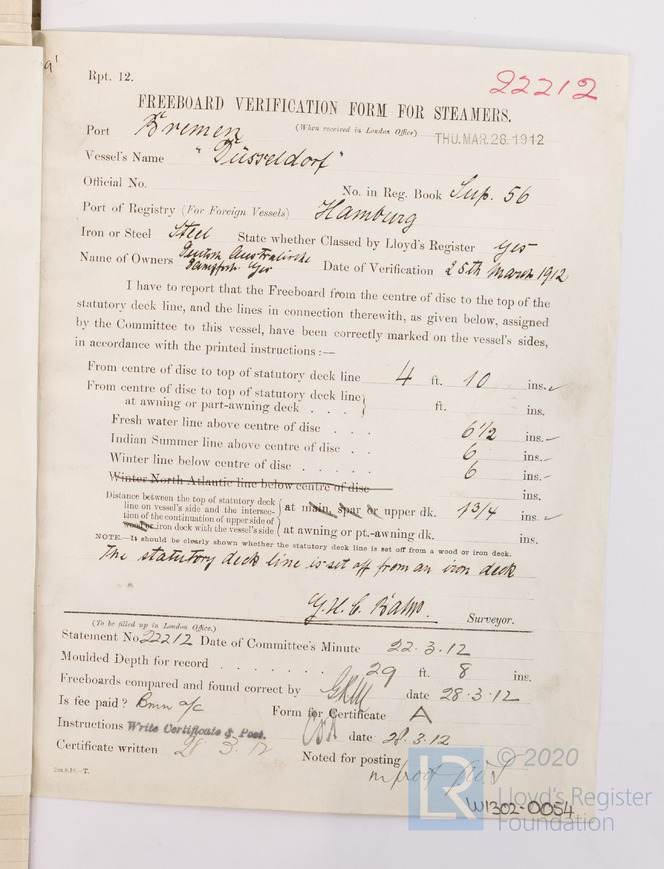 Rpt. 12.
22212
FREEBOARD VERIFICATION FORM FOR STEAMERS.
Port Bremen (When received in London Office) THU.MAR.28.1912
Vessel's Name "Düsseldorf"
Official No. No. in Reg. Book Sup. 56
Port of Registry (For Foreign Vessels) Hamburg
Iron or Steel Steel State whether Classed by Lloyd's Register yes
Name of Owners Deutsch Australische Dampfsch. Ges Date of Verification 25th March 1912
I have to report that the Freeboard from the centre of disc to the top of the
statutory deck line, and the lines in connection therewith, as given below, assigned
by the Committee to this vessel, have been correctly marked on the vessel's sides,
in accordance with the printed instructions :—
From centre of disc to top of statutory deck line 4 ft. 10 ins.
From centre of disc to top of statutory deck line
at awning or part-awning deck . . . ft. ins.
Fresh water line above centre of disc . . . 6 1/2 ins.
Indian Summer line above centre of disc . . 6 ins.
Winter line below centre of disc . . . . . 6 ins.
Winter North Atlantic line below centre of disc ins.
Distance between the top of statutory deck
line on vessel's side and the intersec-
tion of the continuation of upper side of
wood or iron deck with the vessel's side
at main, spar or upper dk. 1 3/4 ins.
at awning or pt.-awning dk. ins.
NOTE.—It should be clearly shown whether the statutory deck line is set off from a wood or iron deck.
The statutory deck line is set off from an iron deck
Surveyor.
(To be filled up in London Office.)
Statement No. 22212 Date of Committee's Minute 22.3.12
Moulded Depth for record . . . . . . . 29 ft. 8 ins.
Freeboards compared and found correct by date 28.3.12
Is fee paid? Bmn a/c Form for Certificate A
Instructions Write Certificate & Post. date 28.3.12
Certificate written 28 3.12 Noted for posting
W1302-0054
LR
© 2020
Lloyd's Register
Foundation